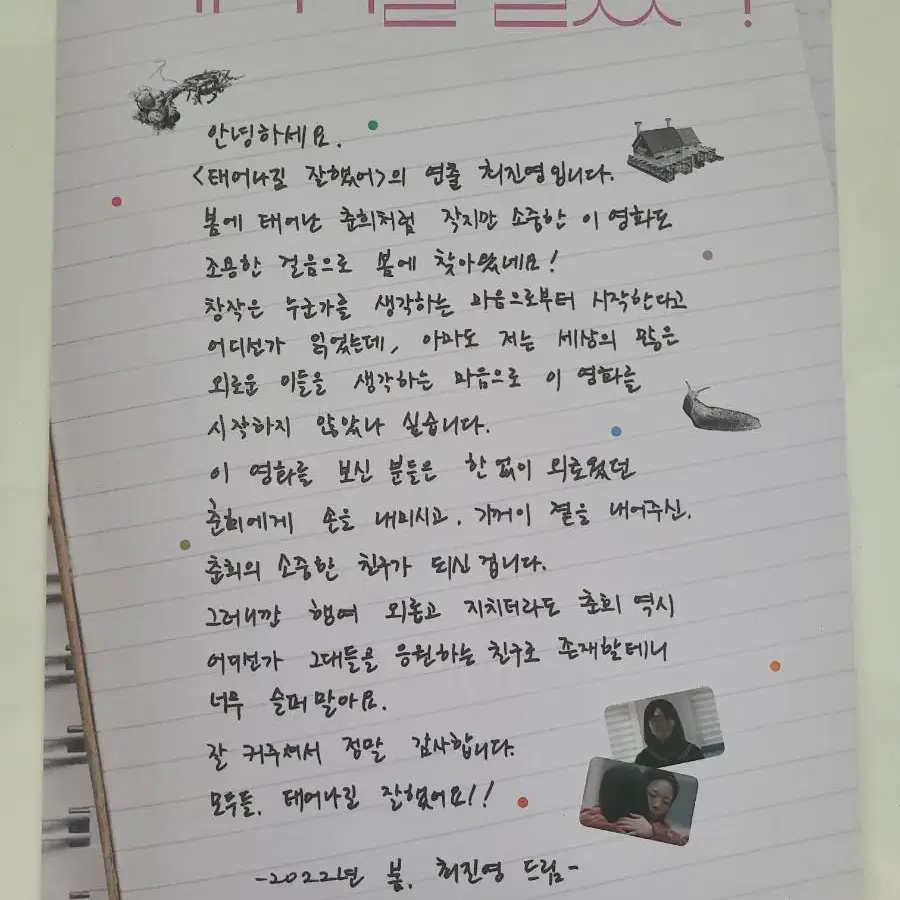 안녕하세요.
<태어나길 잘했어>의 연출 최진영입니다.
봄에 태어난 춘희처럼 작지만 소중한 이 영화도
조용한 걸음으로 봄에 찾아왔네요!
창작은 누군가를 생각하는 마음으로부터 시작한다고
어디선가 읽었는데, 아마도 저는 세상의 많은
외로운 이들을 생각하는 마음으로 이 영화를
시작하지 않았나 싶습니다.
이 영화를 보신 분들은 한없이 외로웠던
춘희에게 손을 내미시고, 기꺼이 곁을 내어주신,
춘희의 소중한 친구가 되신 겁니다.
그러니깐 행여 외롭고 지치더라도 춘희 역시
어디선가 그대들을 응원하는 친구로 존재할테니
너무 슬퍼말아요.
잘 커주셔서 정말 감사합니다.
모두들, 태어나길 잘했어요!!
-2022년 봄, 최진영 드림-